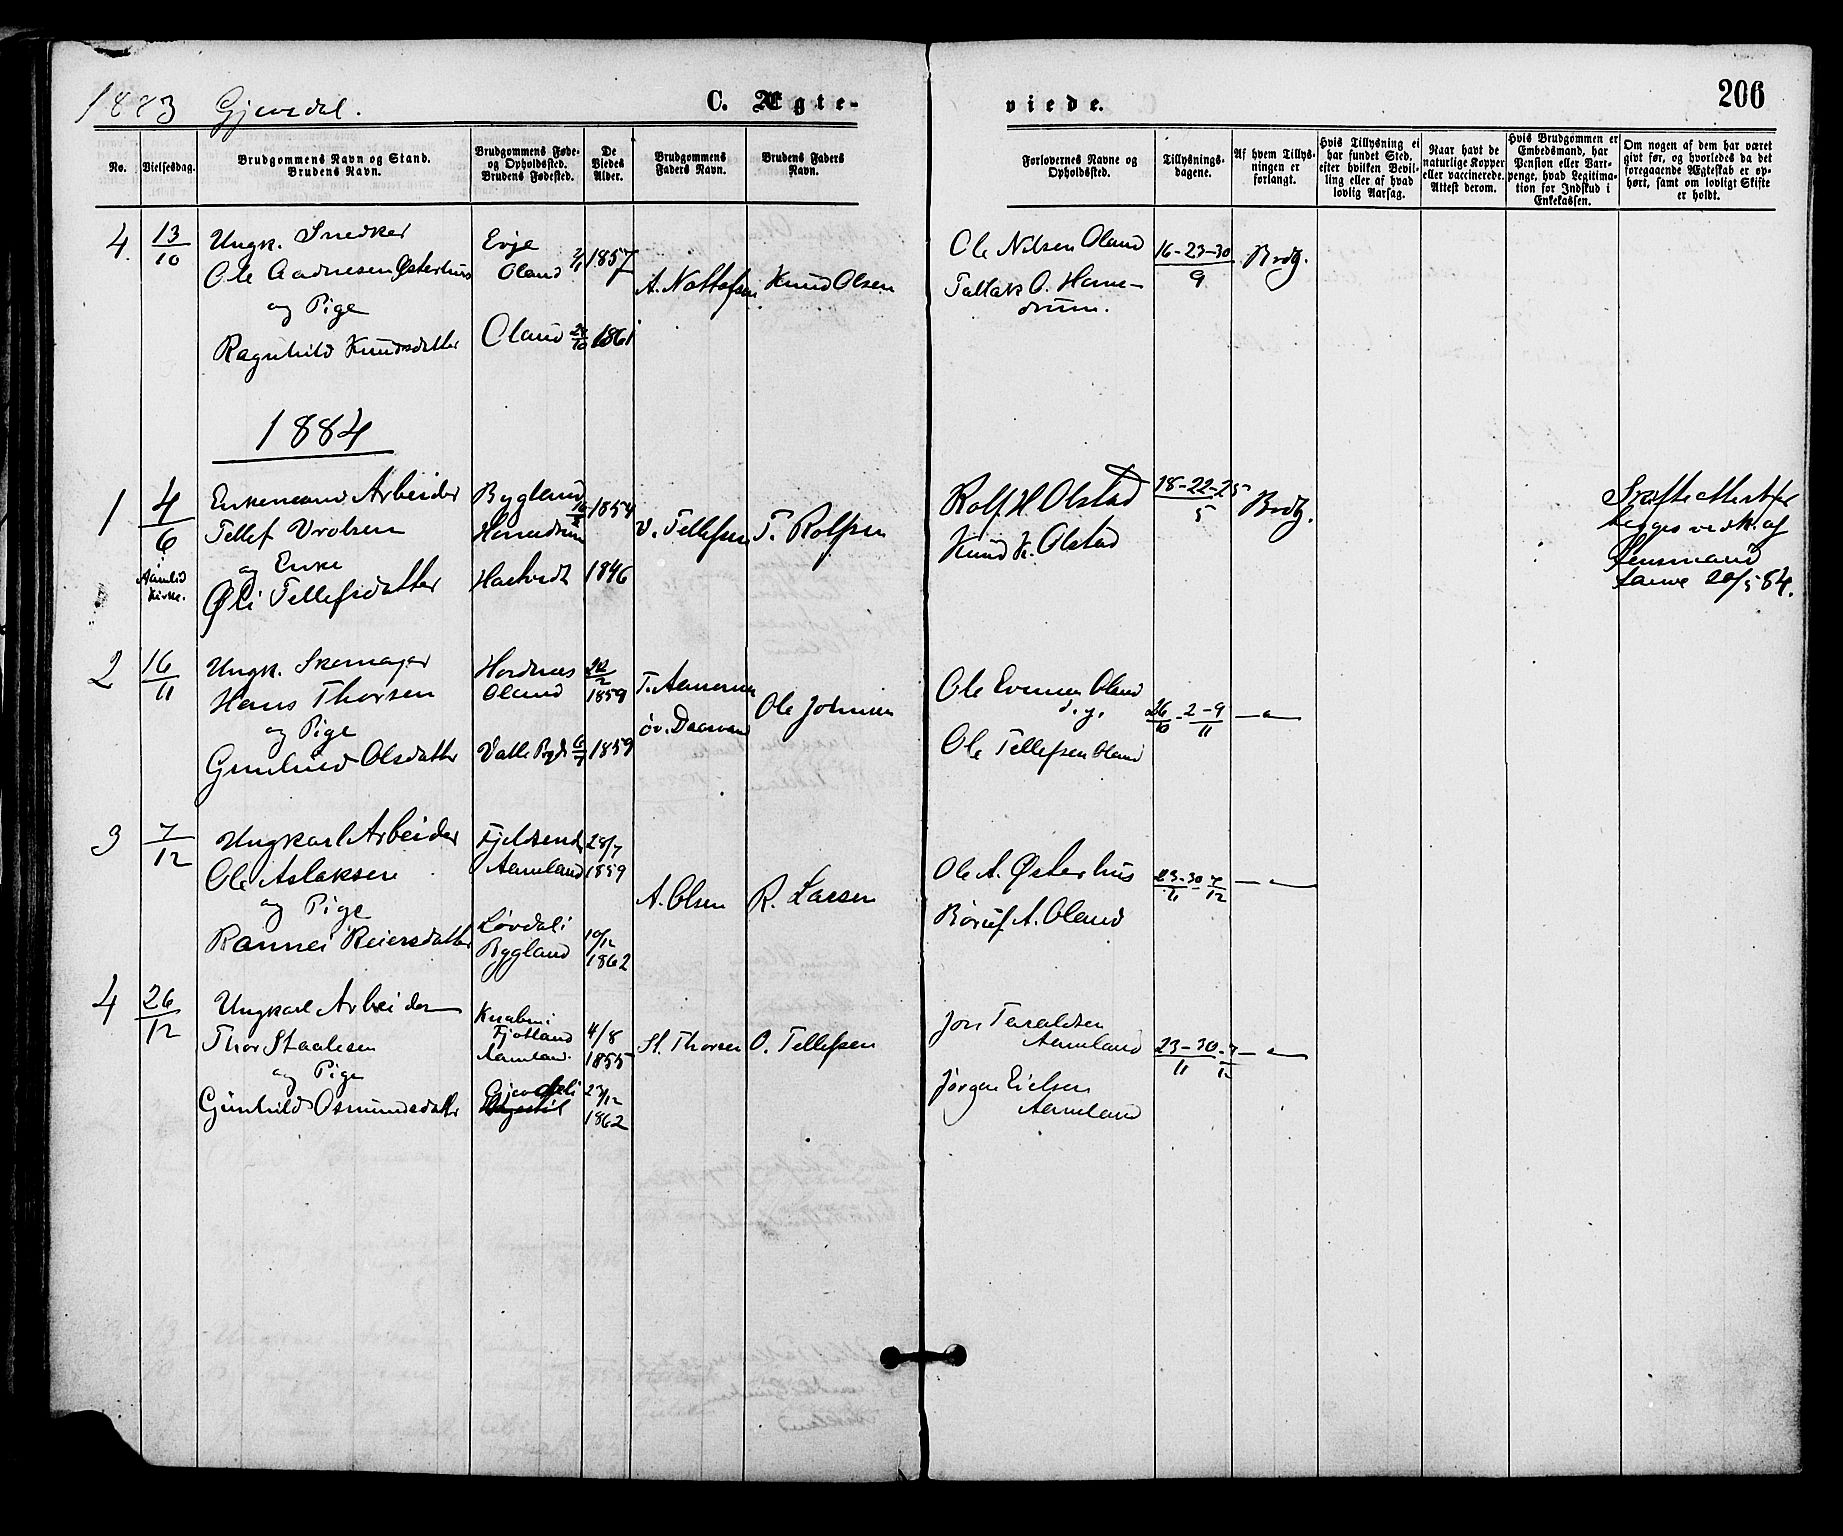 1883 Gjevedal.
C. Ægte-
viede.
206
No.
Vielsesdag.
Brudgommens Navn og Stand.
Brudens Navn.
Brudgommens Føde-
og Opholdssted.
Brudens Fødested.
De
Viedes
Alder.
Brudgommens
Faders Navn.
Brudens Faders
Navn.
Forlovernes Navne og
Opholdssted.
Tillysnings-
dagene.
Af hvem Tillys-
ningen er
forlangt.
Hvis Tillysning ei
har fundet Sted,
efter hvilken Bevil-
ling eller af hvad
lovlig Aarsag.
Naar havt de
naturlige Kopper
eller vaccinerede.
Attest derom.
Hvis Brudgommen er
Embedsmand, har
Pension eller Vart-
penge, hvad Legitima-
tion for Indskud i
Enkekassen.
Om nogen af dem har været
givt før, og hvorledes da det
foregaaende Ægteskab er op-
hørt, samt om lovligt Skifte
er holdt.
4. 13/10
Ungk. Snedker
Ole Aadnesen Østerhus
og Pige
Ragnhild Knudsdatter
Evje
Oland
1857
Oland 1861
A. Nottofsen
Knud Olsen
Ole Nilsen Oland
Tallak O. Homme-
drum.
16-23-30/9
Brdg.
1884
1 4/6
i
Aamlid
Kirke.
Enkemand Arbeider
Tellef Vrolsen
og Enke
Øli Tellefsdatter
Bygland
1854
Hartvedt 1846
V. Tellefsen
T. Rolfsen
Rolf H Olstad
Knud K. Olstad
18-22-25/5
Brdg.
Skifte efter
begges vedk. af
Lensmand
20/5 84.
2 16/11
Ungk. Skomager
Hans Thorsen
og Pige
Gunhild Olsdatter
Hordnæs
Oland
1859
Valle 1859
Ole Johnsen
Ole Evensen Oland
d.y.
Ole Tellefsen Oland
26/10 - 2-9/11
— " —
3 7/12
Ungkarl Arbeider
Ole Aslaksen
og Pige
Rannei Reiersdatter
Aamland
28/7
1859
Løvdal i
Bygland
10/12
1862
A. Olsen
R. Larsen
Ole A. Østerhus
Børuf A. Oland
23-30/11 - 7/12
— " —
4 26/12
Ungkarl Arbeider
Thor Staalesen
og Pige
Gunhild Osmundsdatter
Knaben i
Fjotland
Aamland.
4/8
1855
Gjevedal i
23/12
1862
St. Thorsen
O. Tellefsen
Jon Teraldsen
Aamland
Jørgen Eielsen
Aamland
23-30/11 - 7/12
— " —